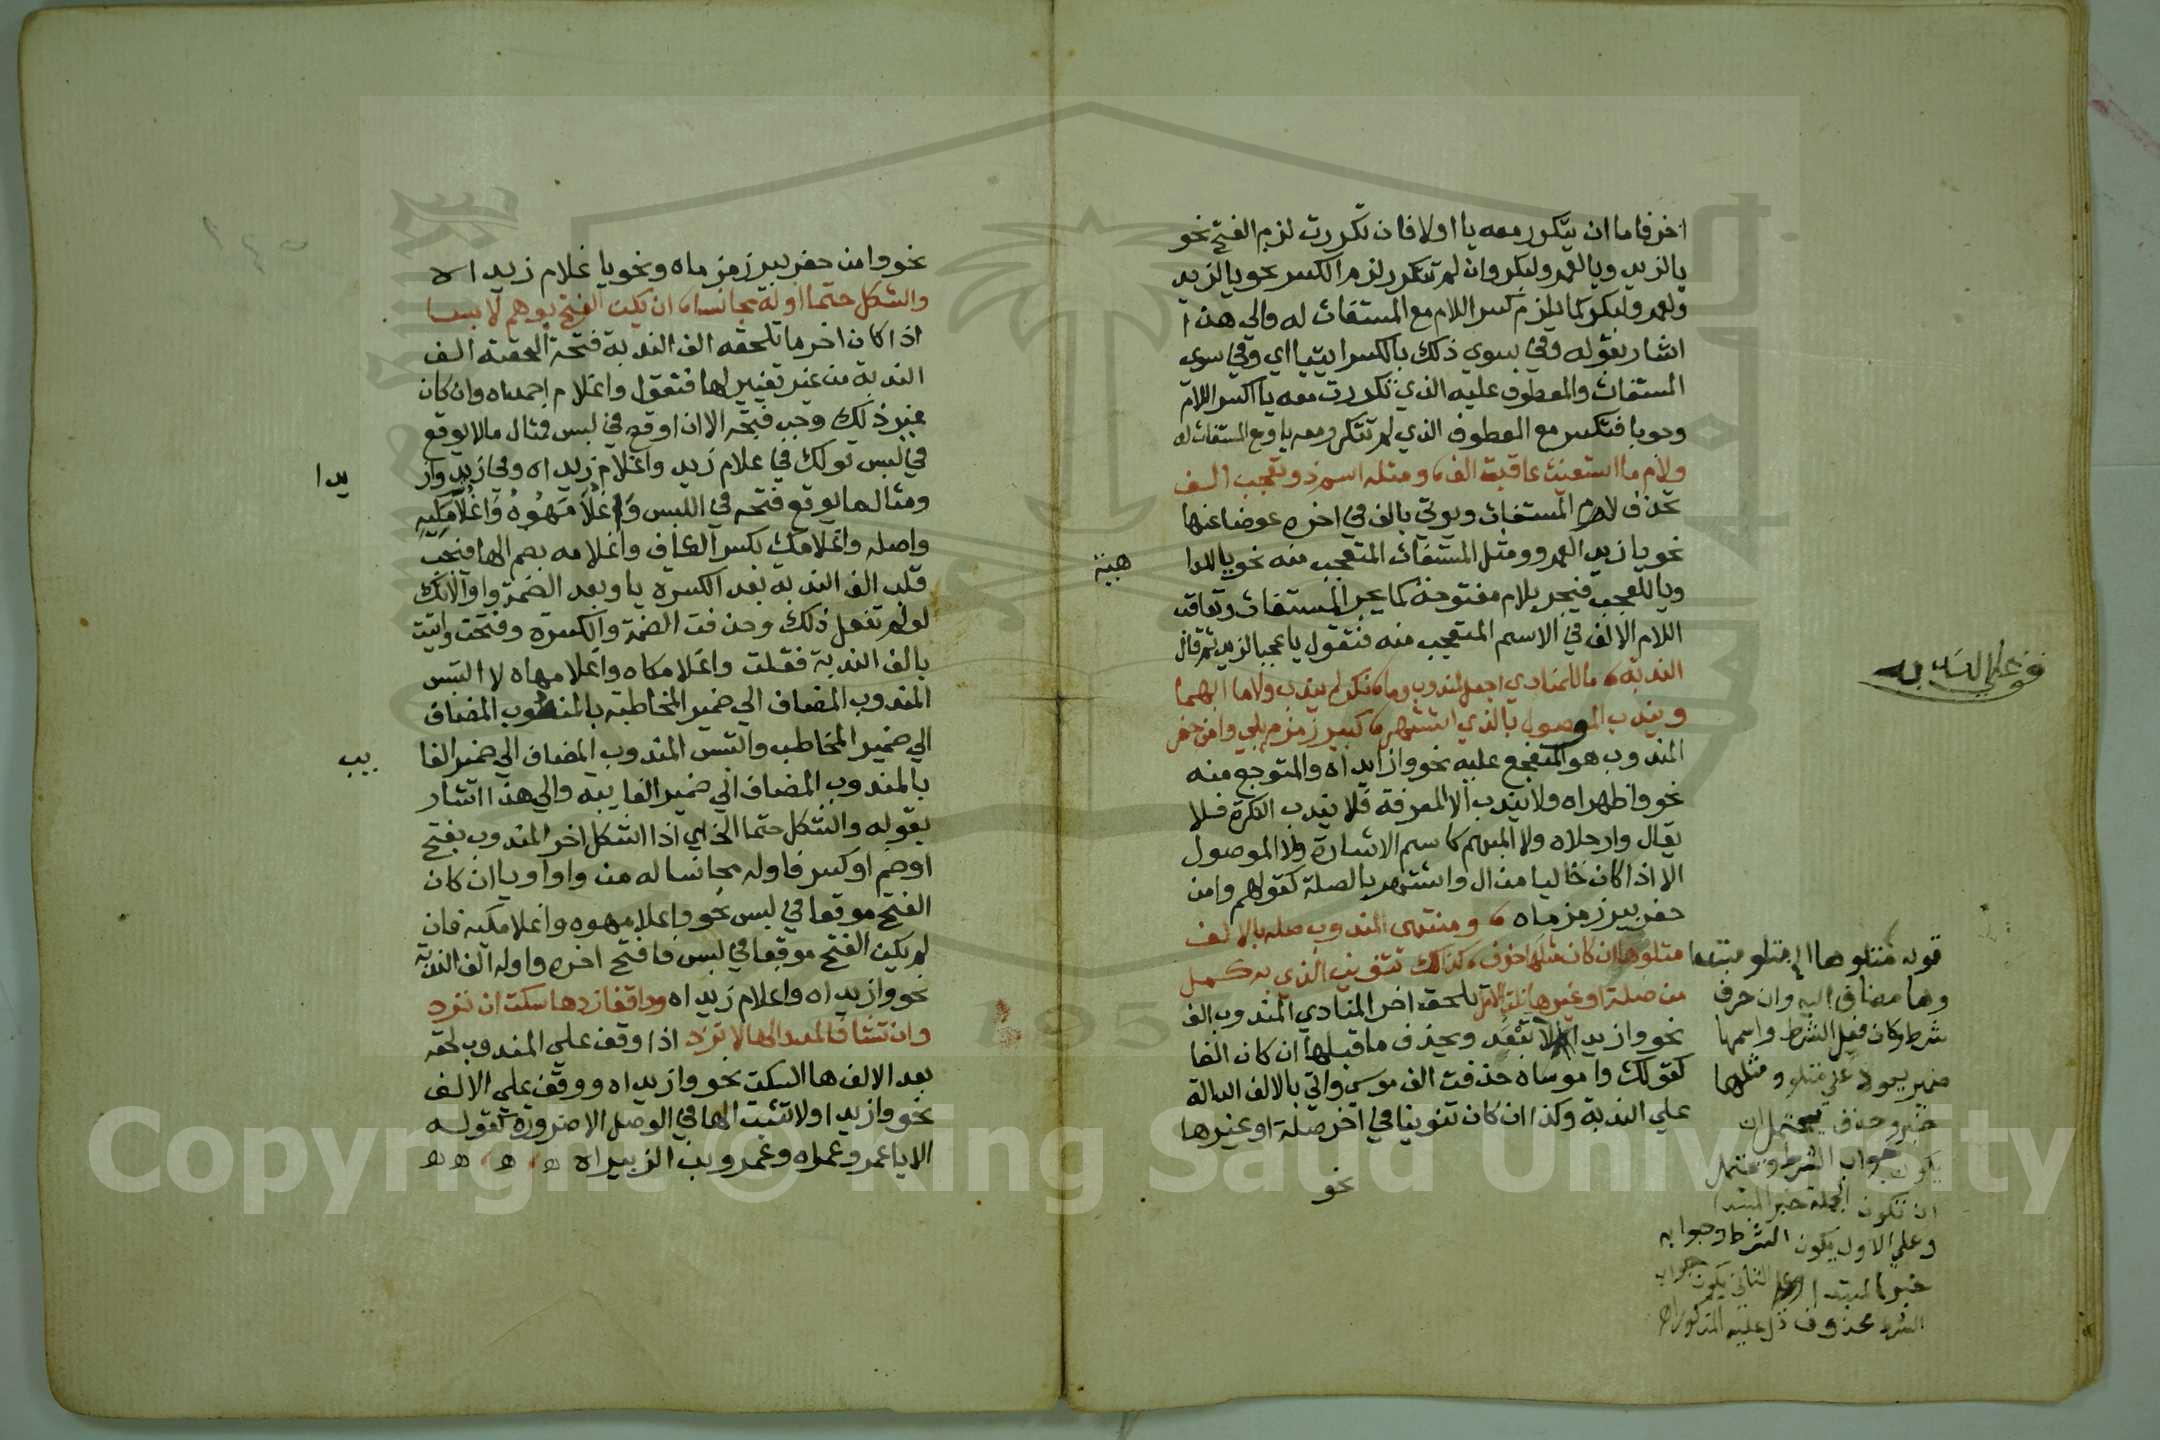 اخر فاما ان يتكرر معه يا اولا فان تكررت لزم الفتح نحو
يا لزيد ويا لعمرو لبكر وان لم تتكرر لزم الكسر نحو يا لزيد
ولعمرو لبكر كما يلزم كسر اللام مع المستغاث له والى هذا
اشار بقوله وفي سوي ذلك بالكسر ايتيا اي وفي سوي
المستغاث والمعطوف عليه الذي تكررت معه يا اكسر اللام
وجوبا فتكسر مع المعطوف الذي لم تتكرر معه يا ومع المستغاث له
ولام ما استغيث عاقبت الف ومثله اسم ذو تعجب الف
تحذف لام المستغاث ويوتي بالف في اخره عوضا عنها
نحو يا زيدا لعمرو ومثل المستغاث المتعجب منه نحو يا للدا
هية
ويا للعجب فيجر بلام مفتوحة كما يجر المستغاث وتعاقب
اللام الالف في الاسم المتعجب منه فتقول يا عجبا لزيد ثم قال
الندبة ما للمنادي اجعل لمندوب وما نكر لم يندب ولا ما ابهما
ويندب الموصول بالذي اشتهر كبير زمزم يلي وامن حفر
المندوب هو المتفجع عليه نحو وازيداه والمتوجع منه
نحو واظهراه ولا يندب الا المعرفة فلا يندب النكرة فلا
يقال وارجلاه ولا المبهم كاسم الاشارة ولا الموصول
الا اذا كان خاليا من ال واشتهر بالصلة كقولهم وامن
حفر بير زمزماه ومنتهى المندوب صله بالالف
متلوها ان كان مثلها حذف كذاك تنوين الذي به كمل
من صلة او غيرها نلت الامل يلحق اخر المنادي المندوب الف
نحو وازيدا لا تبعد ويحذف ما قبلها ان كان الفا
كقولك وا موساه حذفت الف موسي واتي بالالف الدالة
علي الندبة وكذا ان كان تنوينا في اخر صلة او غيرها
نحو
قوله متلوها اي متلو مبتدا
وها مضاف اليه وان حرف
شرط وكان فعل الشرط واسمها
ضمير يعود علي متلو ومثلها
خبر وحذف يحتمل ان
يكون جواب الشرط ويحتمل
ان تكون الجملة خبر المبتدا
وعلي الاول يكون الشرط وجوابه
خبر المبتدا وعلي الثاني يكون جواب
الشرط محذوف دل عليه المذكور اه
نحو وامن حفر بير زمزماه ونحو يا غلام زيداه
والشكل حتما اوله مجانسا ان يكن الفتح بوهم لابسا
اذا كان اخر ما تلحقه الف الندبة فتحة الحقته الف
الندبة من غير تغيير لها فتقول واغلام احمداه وان كان
غير ذلك وجب فتحه الا ان اوقع في لبس فمثال ما لا يوقع
في لبس قولك في غلام زيد واغلام زيداه وفي زيد واز
يدا
ومثال ما يوقع فتحه في اللبس واغلامهوه واغلامكيه
واصله واغلامك بكسر الكاف واغلامه بضم الها فيجب
قلب الف الندبة بعد الكسرة يا وبعد الضمة واوا لانك
لو لم تفعل ذلك وحذفت الضمة والكسرة وفتحت واتيت
بالف الندبة فقلت واغلامكاه واغلامهاه لا التبس
المندوب المضاف الي ضمير المخاطبة بالمندوب المضاف
الي ضمير المخاطب والتبس المندوب المضاف الي ضمير الغا
يب
بالمندوب المضاف الي ضمير الغايبه والي هذا اشار
بقوله والشكل حتما الخ اي اذا شكل اخر المندوب بفتح
او ضم او كسر فاوله مجانسا له من واو او يا ان كان
الفتح موقعا في لبس نحو واغلامهوه واغلامكيه فان
لم يكن الفتح موقعا في لبس فافتح اخره واوله الف الندبة
نحو وازيداه واغلام زيداه وواقفا زد ها سكت ان ترد
وان تشا فالمد والها لا تزد اذا وقف علي المندوب لحقه
بعد الالف ها السكت نحو وازيداه ووقف علي الالف
نحو وازيدا ولا تثبت الها في الوصل الا ضرورة كقوله
الا يا عمرو عمراه وعمرو بن الزبيراه
Copyright © King Saud University